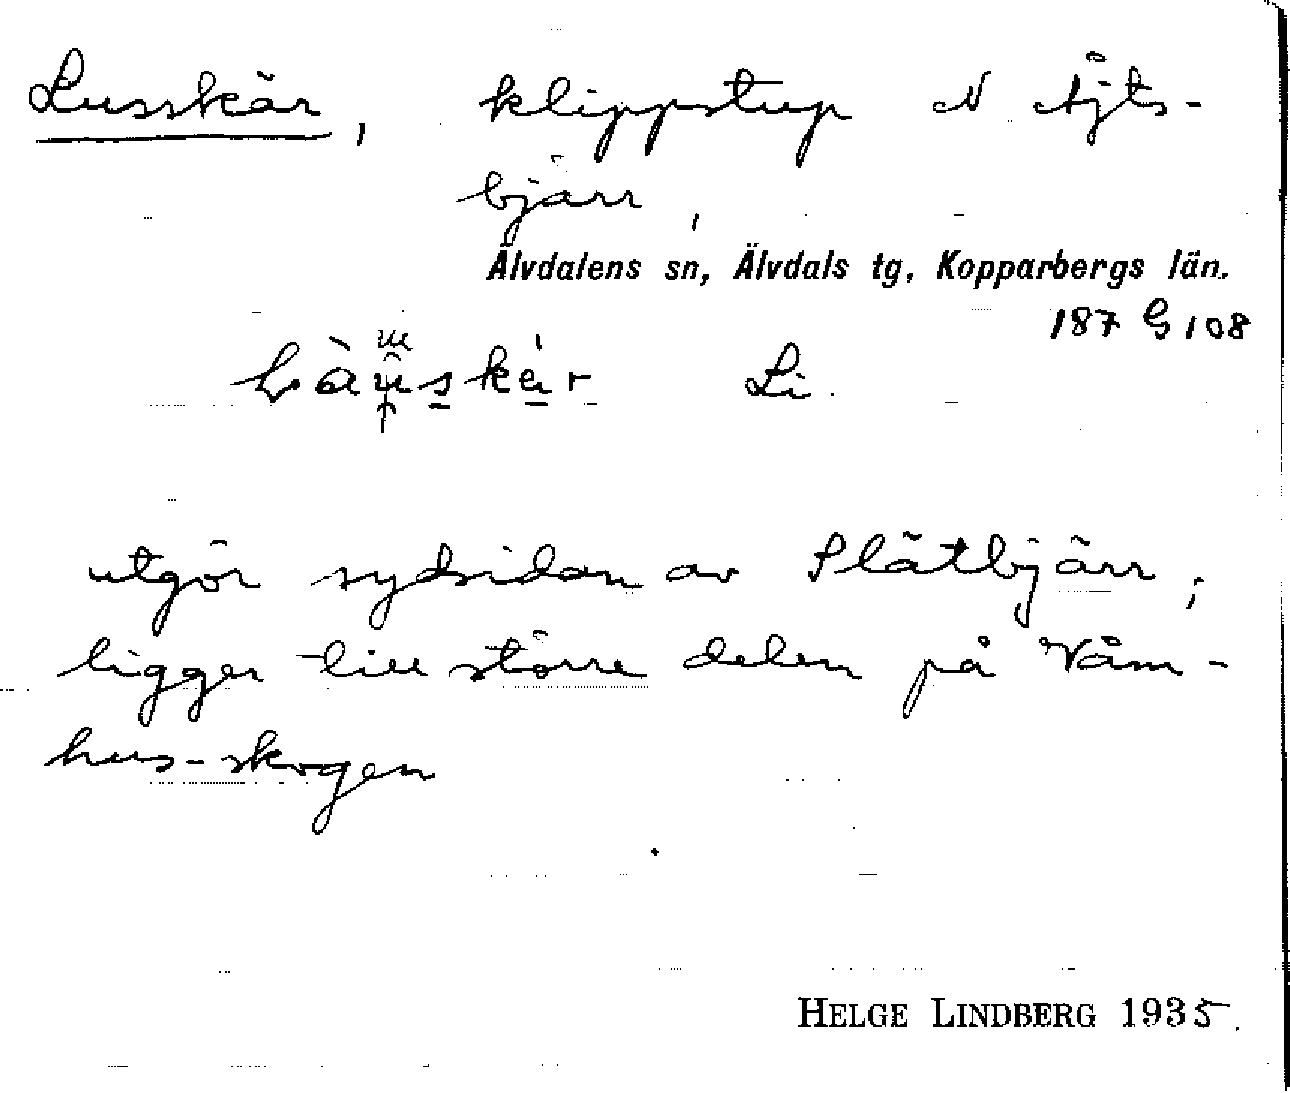 Lusskär, klippstup N Åjts-
bjärr,
Älvdalens sn, Älvdals tg, Kopparbergs län.
187 G 108
Li
utgör sydsidan av Slätbjärr;
ligger till större delen på Våm-
hus-skogen
HELGE LINDBERG 1935.